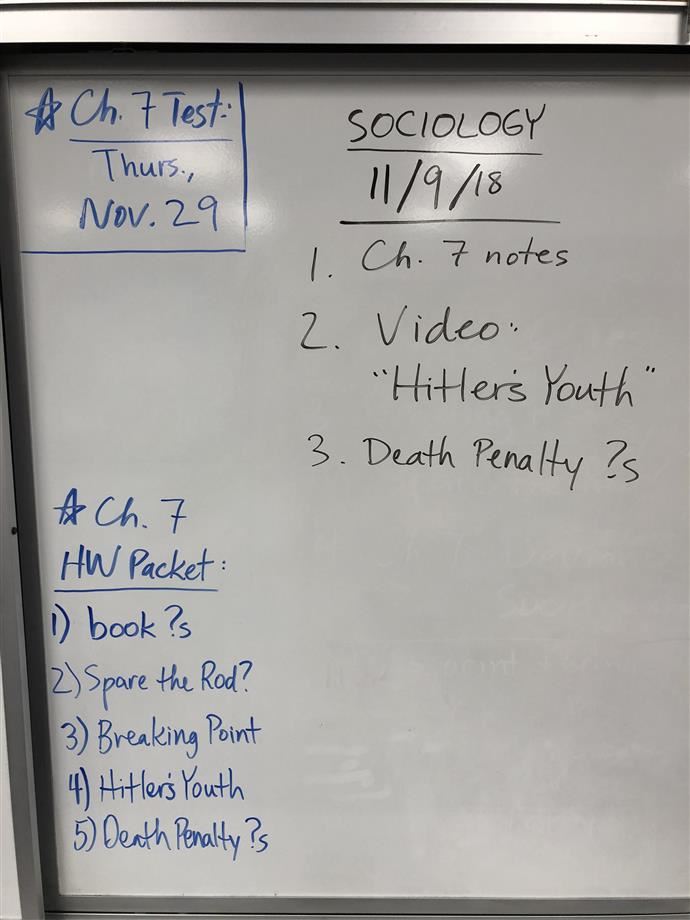 ☆ Ch. 7 Test:
Thurs.,
Nov. 29
SOCIOLOGY
11/9/18
1. Ch. 7 notes
2. Video:
"Hitler's Youth"
3. Death Penalty ?s
☆ Ch. 7
HW Packet:
1) book ?s
2) Spare the Rod?
3) Breaking Point
4) Hitler's Youth
5) Death Penalty ?s